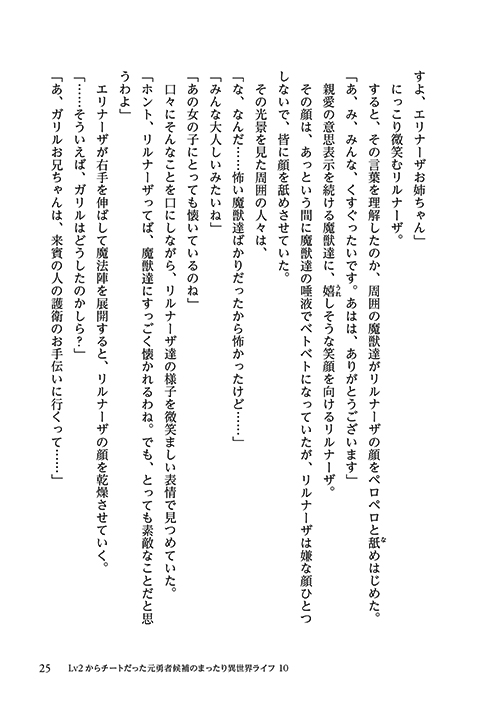 すよ、エリナーザお姉ちゃん」
にっこり微笑むリルナーザ。
すると、その言葉を理解したのか、周囲の魔獣達がリルナーザの顔をペロペロと舐なめはじめた。
「あ、み、みんな、くすぐったいです。あはは、ありがとうございます」
親愛の意思表示を続ける魔獣達に、嬉うれしそうな笑顔を向けるリルナーザ。
その顔は、あっという間に魔獣達の唾液でベトベトになっていたが、リルナーザは嫌な顔ひとつ
しないで、皆に顔を舐めさせていた。
その光景を見た周囲の人々は、
「な、なんだ……怖い魔獣達ばかりだったから怖かったけど……」
「みんな大人しいみたいね」
「あの女の子にとっても懐いているのね」
口々にそんなことを口にしながら、リルナーザ達の様子を微笑ましい表情で見つめていた。
「ホント、リルナーザってば、魔獣達にすっごく懐かれるわね。でも、とっても素敵なことだと思
うわよ」
エリナーザが右手を伸ばして魔法陣を展開すると、リルナーザの顔を乾燥させていく。
「……そういえば、ガリルはどうしたのかしら？」
「あ、ガリルお兄ちゃんは、来賓の人の護衛のお手伝いに行くって……」
25 Lv2からチートだった元勇者候補のまったり異世界ライフ 10